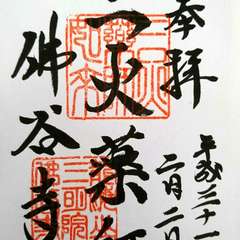 奉拝
平成三十一
二月二日
三火薬師
佛谷寺